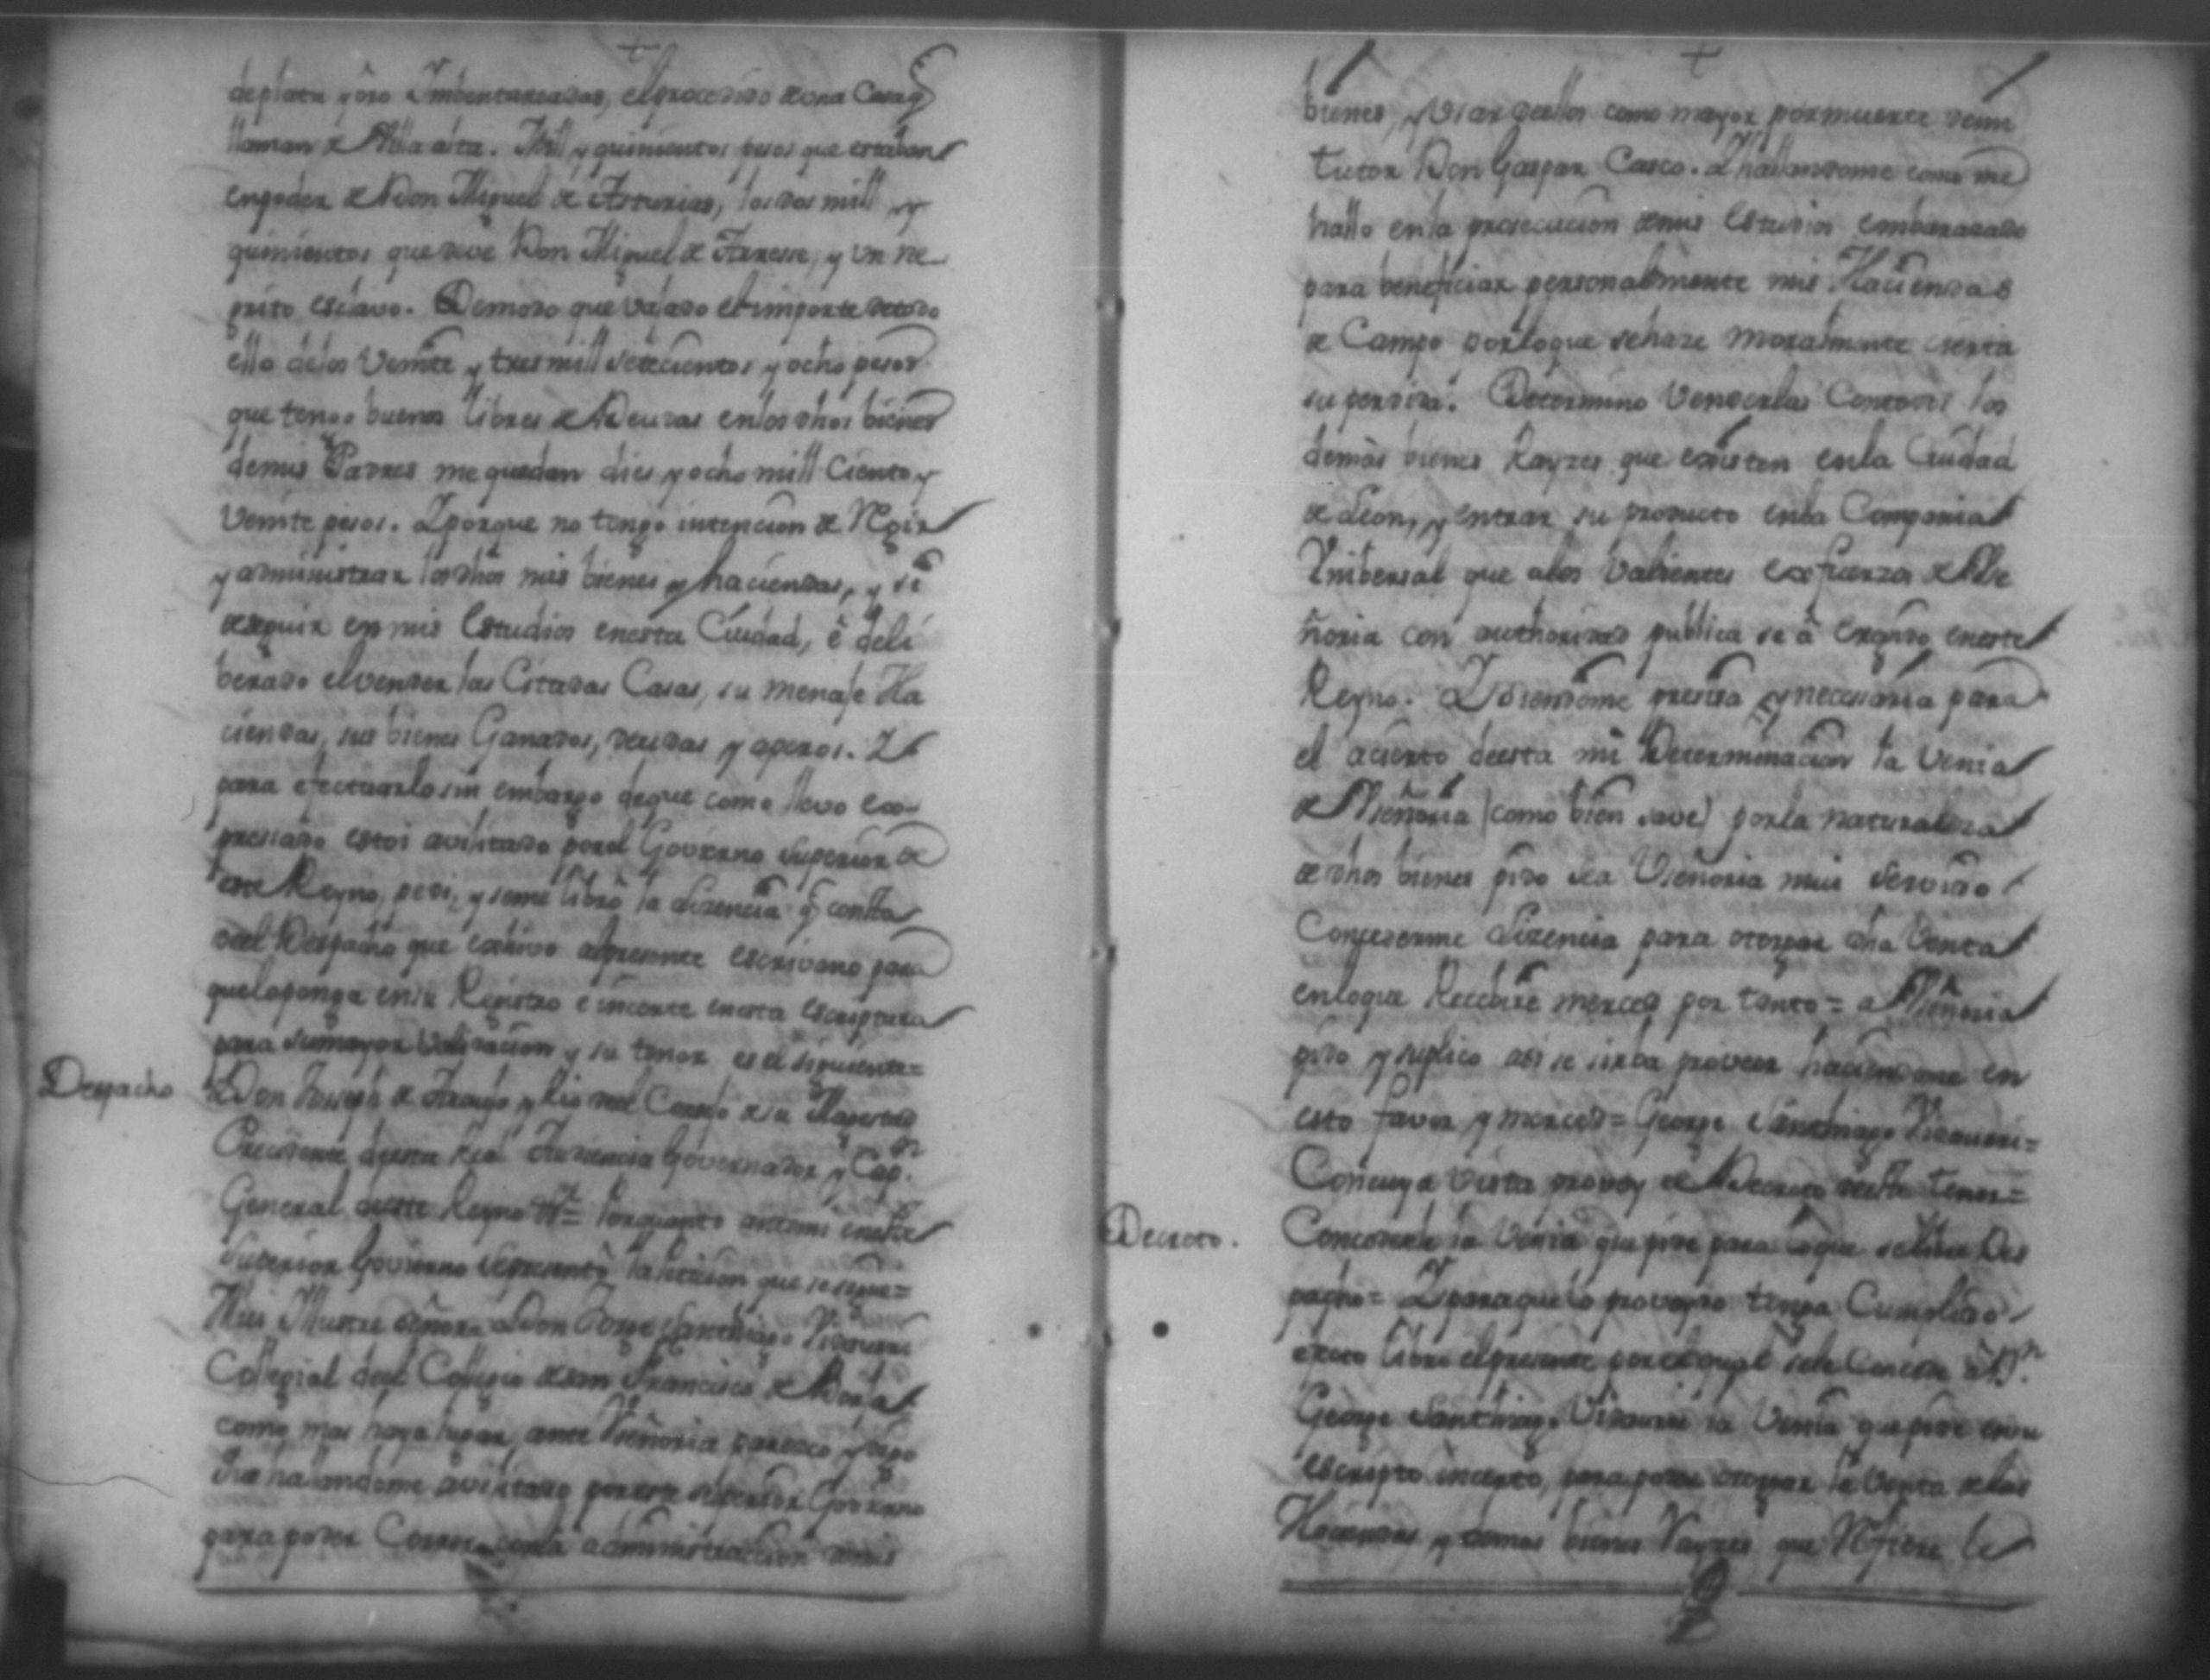 deplata y oro Imbentareadas, el procedido de una Casa q
llaman de Villa alta. Mill y quinientos pesos que estaban
enpoder de Don Miguel de Asturias, los dos mill y
quinientos que deve Don Miguel de y un ne
grito esclavo. Demodo que vajado el importe detodo
ello delos Veinte y tres mill setecientos y ocho pesos
que tengo buenos libres de Deudas enlos dhos bienes
demis Padres me quedan dies y ocho mill Ciento y
Veinte pesos. Y porque no tengo intencion de Regir
y administrar los dhos mis bienes y haciendas, y si
deseguir en mis Estudios enesta Ciudad, é deli
berado el vender las Citadas Casas, su menaje Ha
ciendas, sus bienes Ganados, deudas y aperos. Y
para efectuarlo sin embargo deque como llevo ex
presado estoi avilitado porel Govierno Superior de
este Reyno, pedi, y seme libró la Lizencia q consta
del Despacho que exhivo al presente escrivano para
quelo ponga ensu Registro é incerte enesta escriptura
para sumayor Validacion y su tenor es el siguiente=
Despacho
Don Joseph de Araujo y Rio del Consejo de su Magestad
Precidente desta Real Audiencia Governador y Capn.
General deeste Reyno &a= Porquanto antemi eneste
Superior Govierno sepresentó la peticion que se sigue=
Mui Illustre señor= Don Jorge Santhiago Vidaurre
Collegial deel Colegio de San Francisco de Borja
como mas haya lugar, ante Vseñoria paresco y digo
Que hallandome avilitado poreste superior Govierno
para poder Correr conla administraccion demis
bienes, y Usar dellos como mayor pormuerte demi
tutor Don Gaspar Casco. Y hallandome como me
hallo enla prosecucion demis Estudios embarazado
para beneficiar personalmente mis Haciendas
de Campo porloque sehaze moralmente cierta
su perdida. Determino Venderlas Contodos los
demàs bienes Rayzes que existen enla Ciudad
de Leon, y entrar su producto enla Compania
Vnibersal que alos Valientes exfuerzos de Vse
ñoria con authoridad publica se à erigido eneste
Reyno. Y siendome precisa y necesaria para
el acierto deesta mi Determinacion la Venia
de Vseñoria (como bien save) porla naturaleza
de dhos bienes pido sea Vseñoria mui servido
Concederme Lizencia para otorgar dha Venta
enloque Recebiré merced por tanto= a Vseñoria
pido y suplico asi se sirba proveer haciendome en
esto favor y merced= George Santhiago Vidaurre=
Con cuya Vista provey el Decreto deeste tenor=
Decreto.
Concedesele la Venia que pide para loque selibre Des
pacho= Y paraquelo proveydo tenga Cumplido
efecto libro el presente porelqual sele Concede à Dn.
George Santhiago Vidaurre la Venia que pide ensu
escripto incerto, para poder otorgar la Venta delas
Haciendas y demas bienes Rayzes que Refiere le